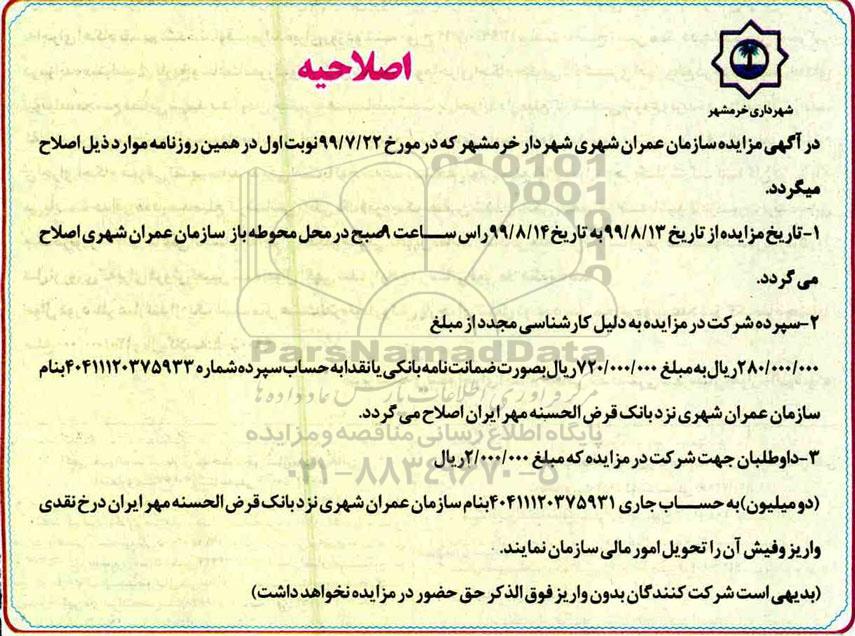 شهرداری خرمشهر
اصلاحیه
در آگهی مزایده سازمان عمران شهری شهردار خرمشهر که در مورخ ۹۹/۷/۲۲ نوبت اول در همین روزنامه موارد ذیل اصلاح
میگردد.
۱-تاریخ مزایده از تاریخ ۹۹/۸/۱۳ به تاریخ ۹۹/۸/۱۴ راس ساعت ۹ صبح در محل محوطه باز سازمان عمران شهری اصلاح
می گردد.
۲-سپرده شرکت در مزایده به دلیل کارشناسی مجدد از مبلغ
۲۸۰/۰۰۰/۰۰۰ ریال به مبلغ ۷۲۰/۰۰۰/۰۰۰ ریال بصورت ضمانت نامه بانکی یا نقدا به حساب سپرده شماره ۴۰۴۱۱۱۲۰۳۷۵۹۳۳ بنام
سازمان عمران شهری نزد بانک قرض الحسنه مهر ایران اصلاح می گردد.
۳-داوطلبان جهت شرکت در مزایده که مبلغ ۲/۰۰۰/۰۰۰ ریال
(دو میلیون) به حساب جاری ۴۰۴۱۱۱۲۰۳۷۵۹۳۱ بنام سازمان عمران شهری نزد بانک قرض الحسنه مهر ایران درخ نقدی
واریز و فیش آن را تحویل امور مالی سازمان نمایند.
(بدیهی است شرکت کنندگان بدون واریز فوق الذکر حق حضور در مزایده نخواهد داشت)
ParsNamadData
مرکز فرآوری اطلاعات پارس نماد داده ها
پایگاه اطلاع رسانی مناقصه و مزایده
۰۲۱-۸۸۳۴۹۶۷۰-۵